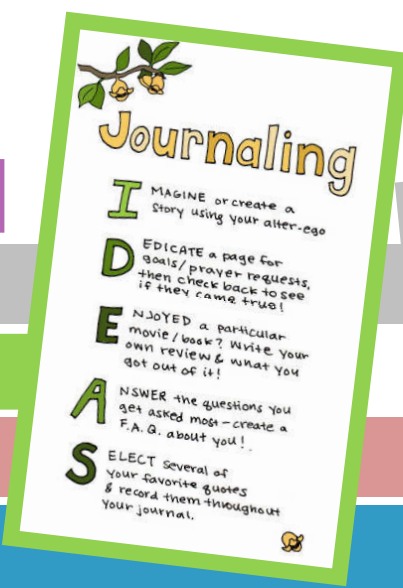 Journaling
IMAGINE or create a
story using your alter-ego
DEDICATE a page for
goals/prayer requests,
then check back to see
if they came true!
ENJOYED a particular
movie/book? Write your
own review & what you
got out of it!
ANSWER the questions you
get asked most - create a
F.A.Q. about you!
SELECT several of
your favorite quotes
& record them throughout
your journal.